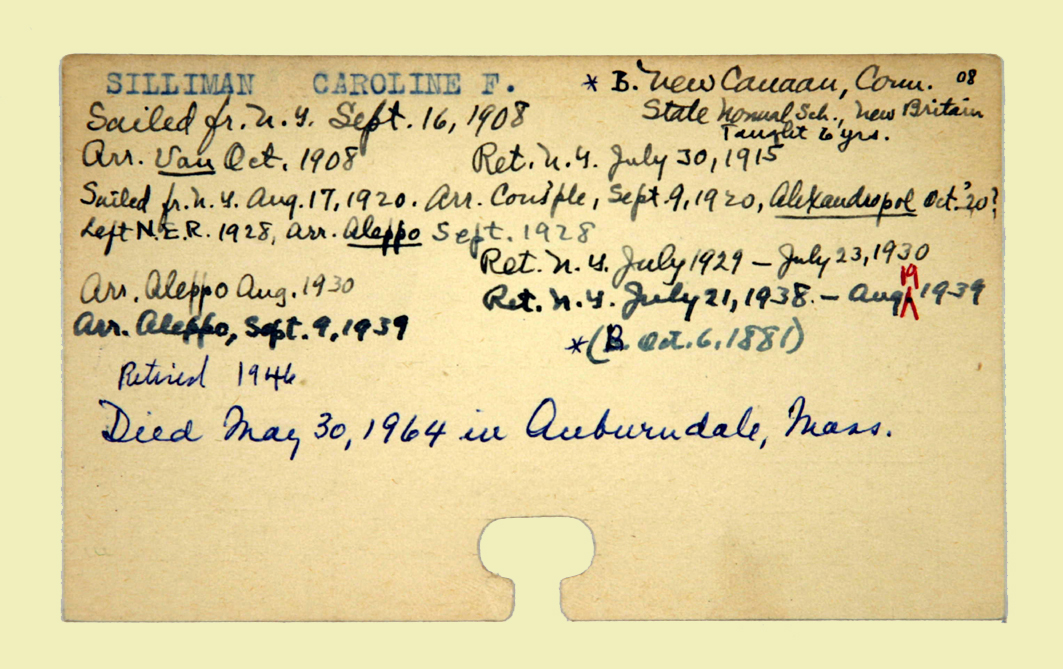 SILLIMAN CAROLINE F. * B. New Canaan, Conn. 08
Sailed fr. N.Y. Sept. 16, 1908 State Normal Sch., New Britain
Taught 6 yrs.
Arr. Van Oct. 1908 Ret. N.Y. July 30, 1915
Sailed fr. N.Y. Aug. 17, 1920. Arr. Cons'ple, Sept. 9, 1920, Alexandropol Oct. '20?
Left N.E.R. 1928, arr. Aleppo Sept. 1928
Ret. N.Y. July 1929 – July 23, 1930
Arr. Aleppo Aug. 1930 Ret. N.Y. July 21, 1938. – Aug. 19 1939
Arr. Aleppo, Sept. 9, 1939 *(B. Oct. 6, 1881)
Retired 1946
Died May 30, 1964 in Auburndale, Mass.